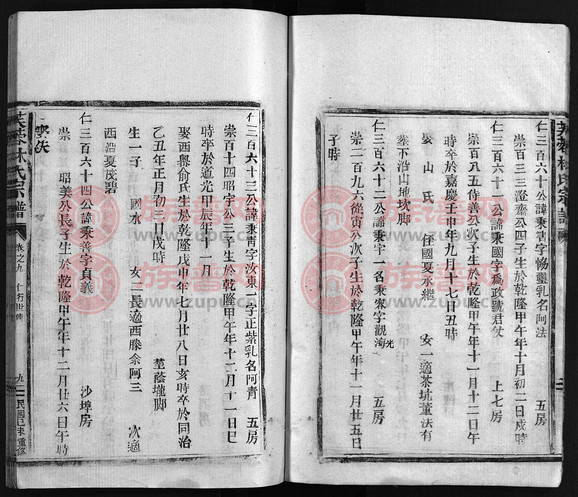 仁三百六十公諱秉書字暢
乳名阿法
五房
崇三百三
公四子生於乾隆甲午年十月初二日戌時
仁三百六十一公諱秉國字爲政號君
上七房
崇百八五侍善公次子生於乾隆甲午年十一月十二日午
時卒於嘉慶壬申年九月十七日丑時
娶山氏
任國夏水繼
女一適茶坑董法有
塟下滘山地坎脚
仁三百六十二公諱秉字一名秉客字觀
光
五房
崇一百九六
公次子生於乾隆甲午年十一月廿五日
子時
仁三百六十三公諱秉青字汝東
子正紫乳名阿青
五房
崇百十四昭宇公三子生於乾隆甲午年十二月十一日巳
時卒於道光甲辰年十一月
娶西
俞氏生於乾隆戊申年
月廿八日亥時卒於同治
乙丑年正月初三日戌時
塟蔭壠脚
生一子
國水
女二長適西滕余阿三
次適
西滘夏茂碧
仁三百六十四公諱秉善字貞義
沙埠房
崇
昭美公長子生於乾隆甲午年十二月廿六日午時
娶失
芙蓉林氏宗譜
卷之九
仁行世傳
九
民國
重修
族譜网
www.zupu.cn